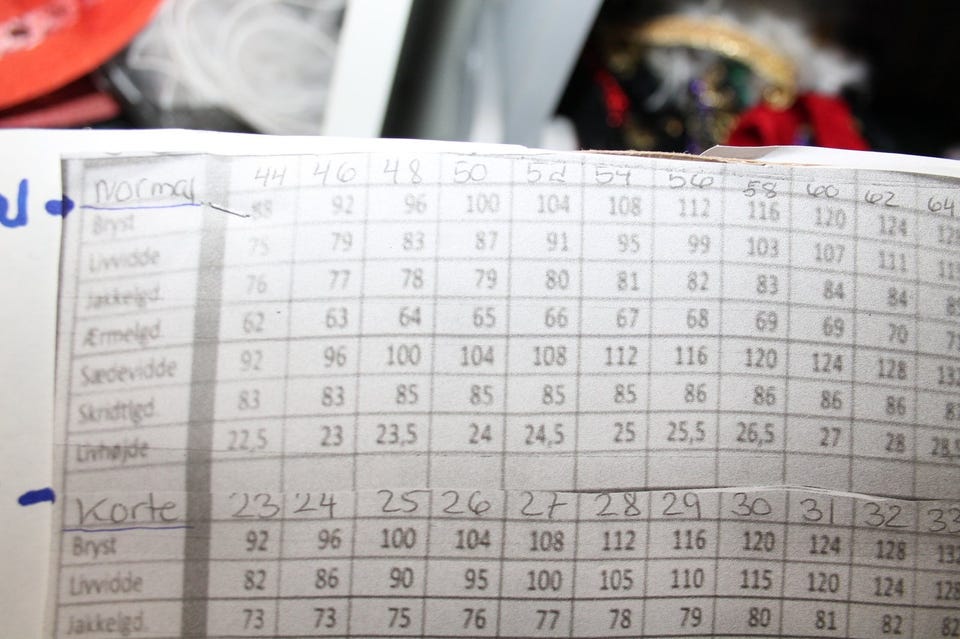 Normal 44 46 48 50 52 54 56 58 60 62 64
Bryst 88 92 96 100 104 108 112 116 120 124
Livvidde 75 79 83 87 91 95 99 103 107 111
Jakkelgd. 76 77 78 79 80 81 82 83 84 84
Ærmelgd. 62 63 64 65 66 67 68 69 69 70
Sædevidde 92 96 100 104 108 112 116 120 124 128 132
Skridtlgd. 83 83 85 85 85 85 86 86 86 86
Livhøjde 22,5 23 23,5 24 24,5 25 25,5 26,5 27 28 28,5
Korte 23 24 25 26 27 28 29 30 31 32 33
Bryst 92 96 100 104 108 112 116 120 124 128 132
Livvidde 82 86 90 95 100 105 110 115 120 124 128
Jakkelgd. 73 73 75 76 77 78 79 80 81 82 82